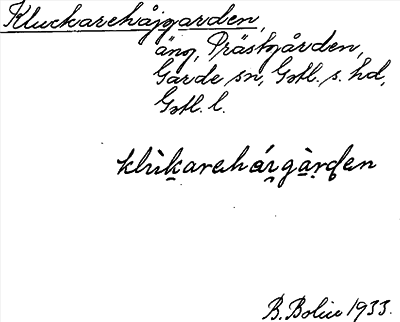 Kluckarehåjgarden,
äng, Prästgården,
Garde sn, Gotl. s. hd,
Gotl. l.
klùḵarehái̯gàrden
B. Bolin 1933.